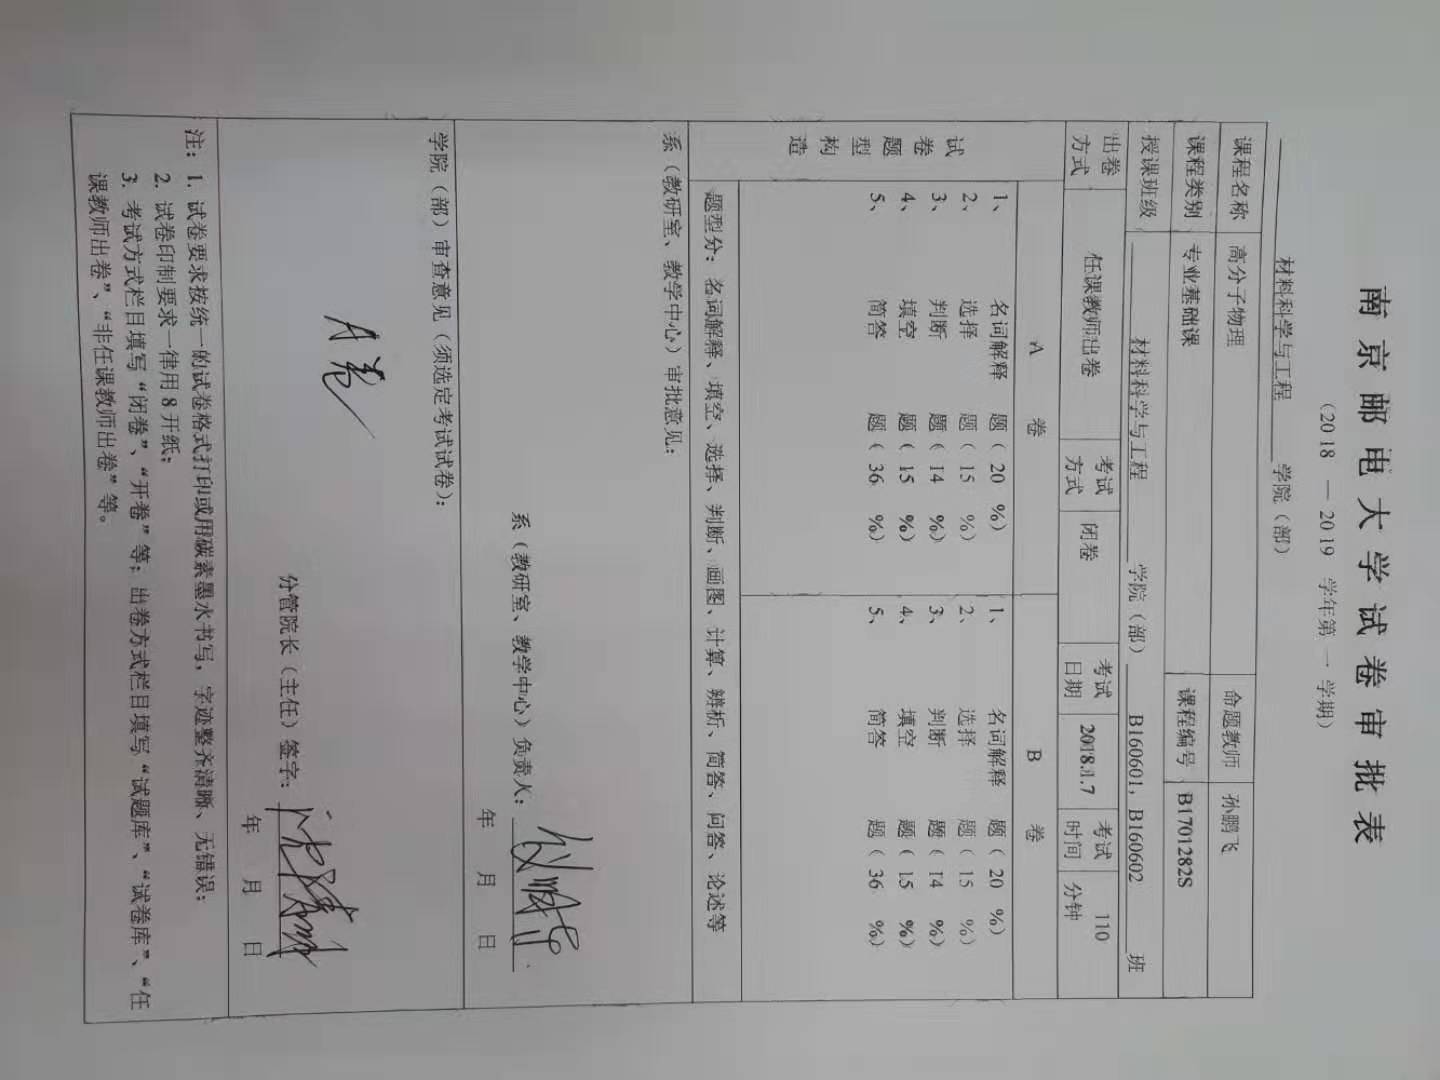 南京邮电大学试卷审批表
（2018 — 2019 学年第 一 学期）
材料科学与工程 学院（部）
课程名称 高分子物理 命题教师 孙鹏飞
课程类别 专业基础课 课程编号 B1701282S
授课班级 材料科学与工程 学院（部） B160601，B160602 班
出卷方式 任课教师出卷 考试方式 闭卷 考试日期 2018.1.7 考试时间 110 分钟
试卷题型构造
A 卷 B 卷
1、 名词解释 题（ 20 %） 1、 名词解释 题（ 20 %）
2、 选择 题（ 15 %） 2、 选择 题（ 15 %）
3、 判断 题（ 14 %） 3、 判断 题（ 14 %）
4、 填空 题（ 15 %） 4、 填空 题（ 15 %）
5、 简答 题（ 36 %） 5、 简答 题（ 36 %）
题型分：名词解释、填空、选择、判断、画图、计算、辨析、简答、问答、论述等
系（教研室、教学中心）审批意见：
系（教研室、教学中心）负责人：
年 月 日
学院（部）审查意见（须选定考试试卷）：
A卷
分管院长（主任）签字：
年 月 日
注：1. 试卷要求按统一的试卷格式打印或用碳素墨水书写，字迹整齐清晰、无错误；
2. 试卷印制要求一律用 8 开纸；
3. 考试方式栏目填写“闭卷”、“开卷”等；出卷方式栏目填写“试题库”、“试卷库”、“任
课教师出卷”、“非任课教师出卷”等。